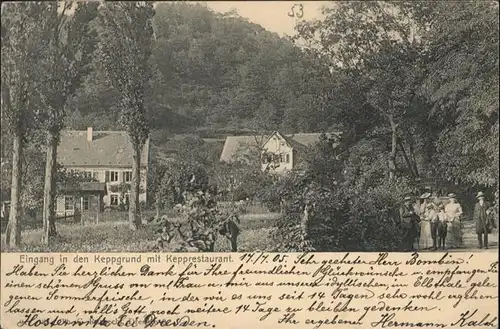 53
Eingang in den Keppgrund mit Kepprestaurant. 17./7.05. Sehr geehrter Herr Bombin!
Haben Sie herzlichen Dank für Ihre freundlichen Glückwünsche u. empfangen
einen schönen Gruss von m. Frau u. mir aus unserer idyllischen, in Elbthale gele
genen Sommerfrische, in der wir es uns seit 14 Tagen sehr wohl ergehen
lassen und will's Gott noch weitere 14 Tage zu bleiben gedenken.
Hosterwitz bei Dresden Ihr ergebenster Hermann Hahn